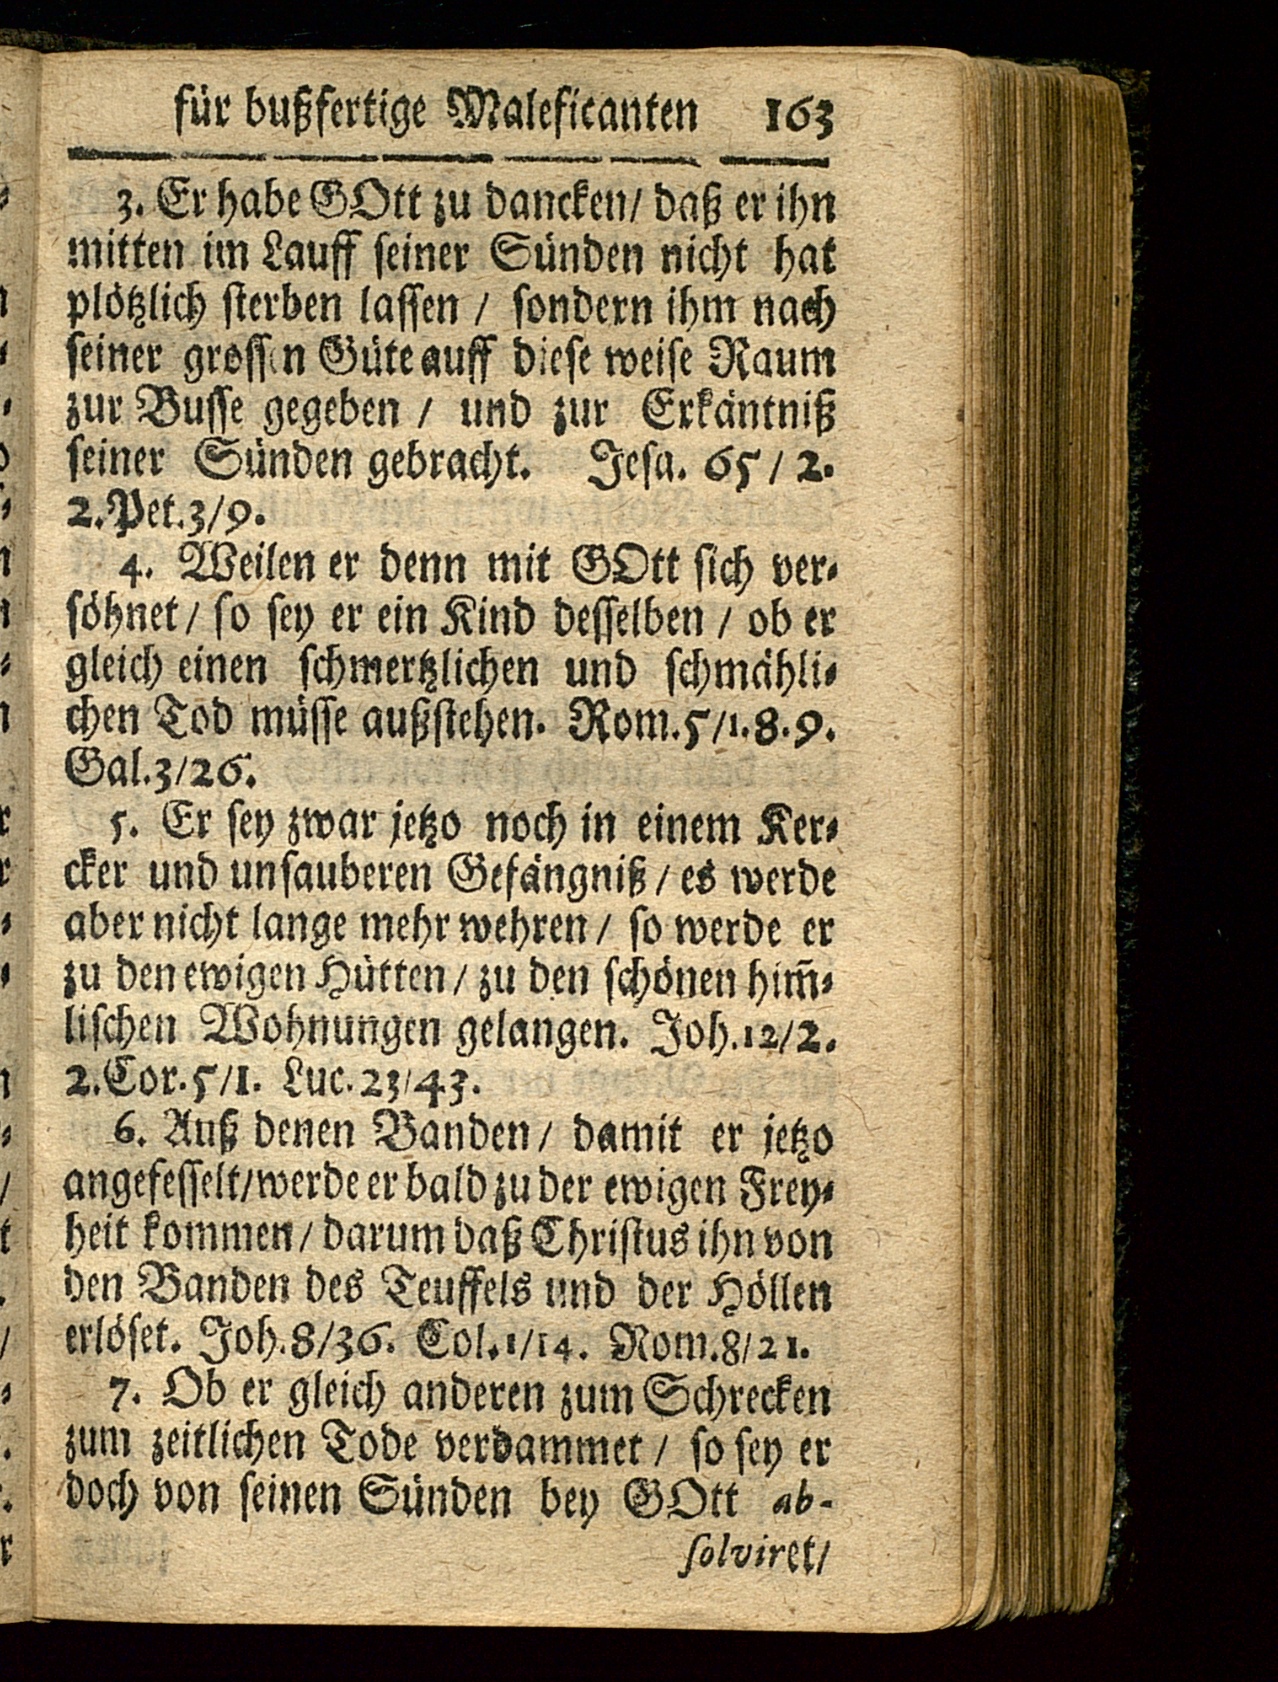 für bußfertige Maleficanten 163
3. Er habe GOtt zu dancken/ daß er ihn
mitten im Lauff seiner Sünden nicht hat
plötzlich sterben lassen / sondern ihm nach
seiner grossen Güte auff diese weise Raum
zur Busse gegeben / und zur Erkäntniß
seiner Sünden gebracht. Jesa. 65 / 2.
2. Pet. 3/9.
4. Weilen er denn mit GOtt sich ver-
söhnet / so sey er ein Kind desselben / ob er
gleich einen schmertzlichen und schmähli-
chen Tod müsse außstehen. Rom. 5/1. 8. 9.
Gal. 3/26.
5. Er sey zwar jetzo noch in einem Ker-
cker und unsauberen Gefängniß / es werde
aber nicht lange mehr wehren / so werde er
zu den ewigen Hütten / zu den schönen him̃-
lischen Wohnungen gelangen. Joh. 12/2.
2. Cor. 5/1. Luc. 23/43.
6. Auß denen Banden / damit er jetzo
angefesselt/werde er bald zu der ewigen Frey-
heit kommen / darum daß Christus ihn von
den Banden des Teuffels und der Höllen
erlöset. Joh. 8/36. Col. 1/14. Rom. 8/21.
7. Ob er gleich anderen zum Schrecken
zum zeitlichen Tode verdammet / so sey er
doch von seinen Sünden bey GOtt ab-
solviret/